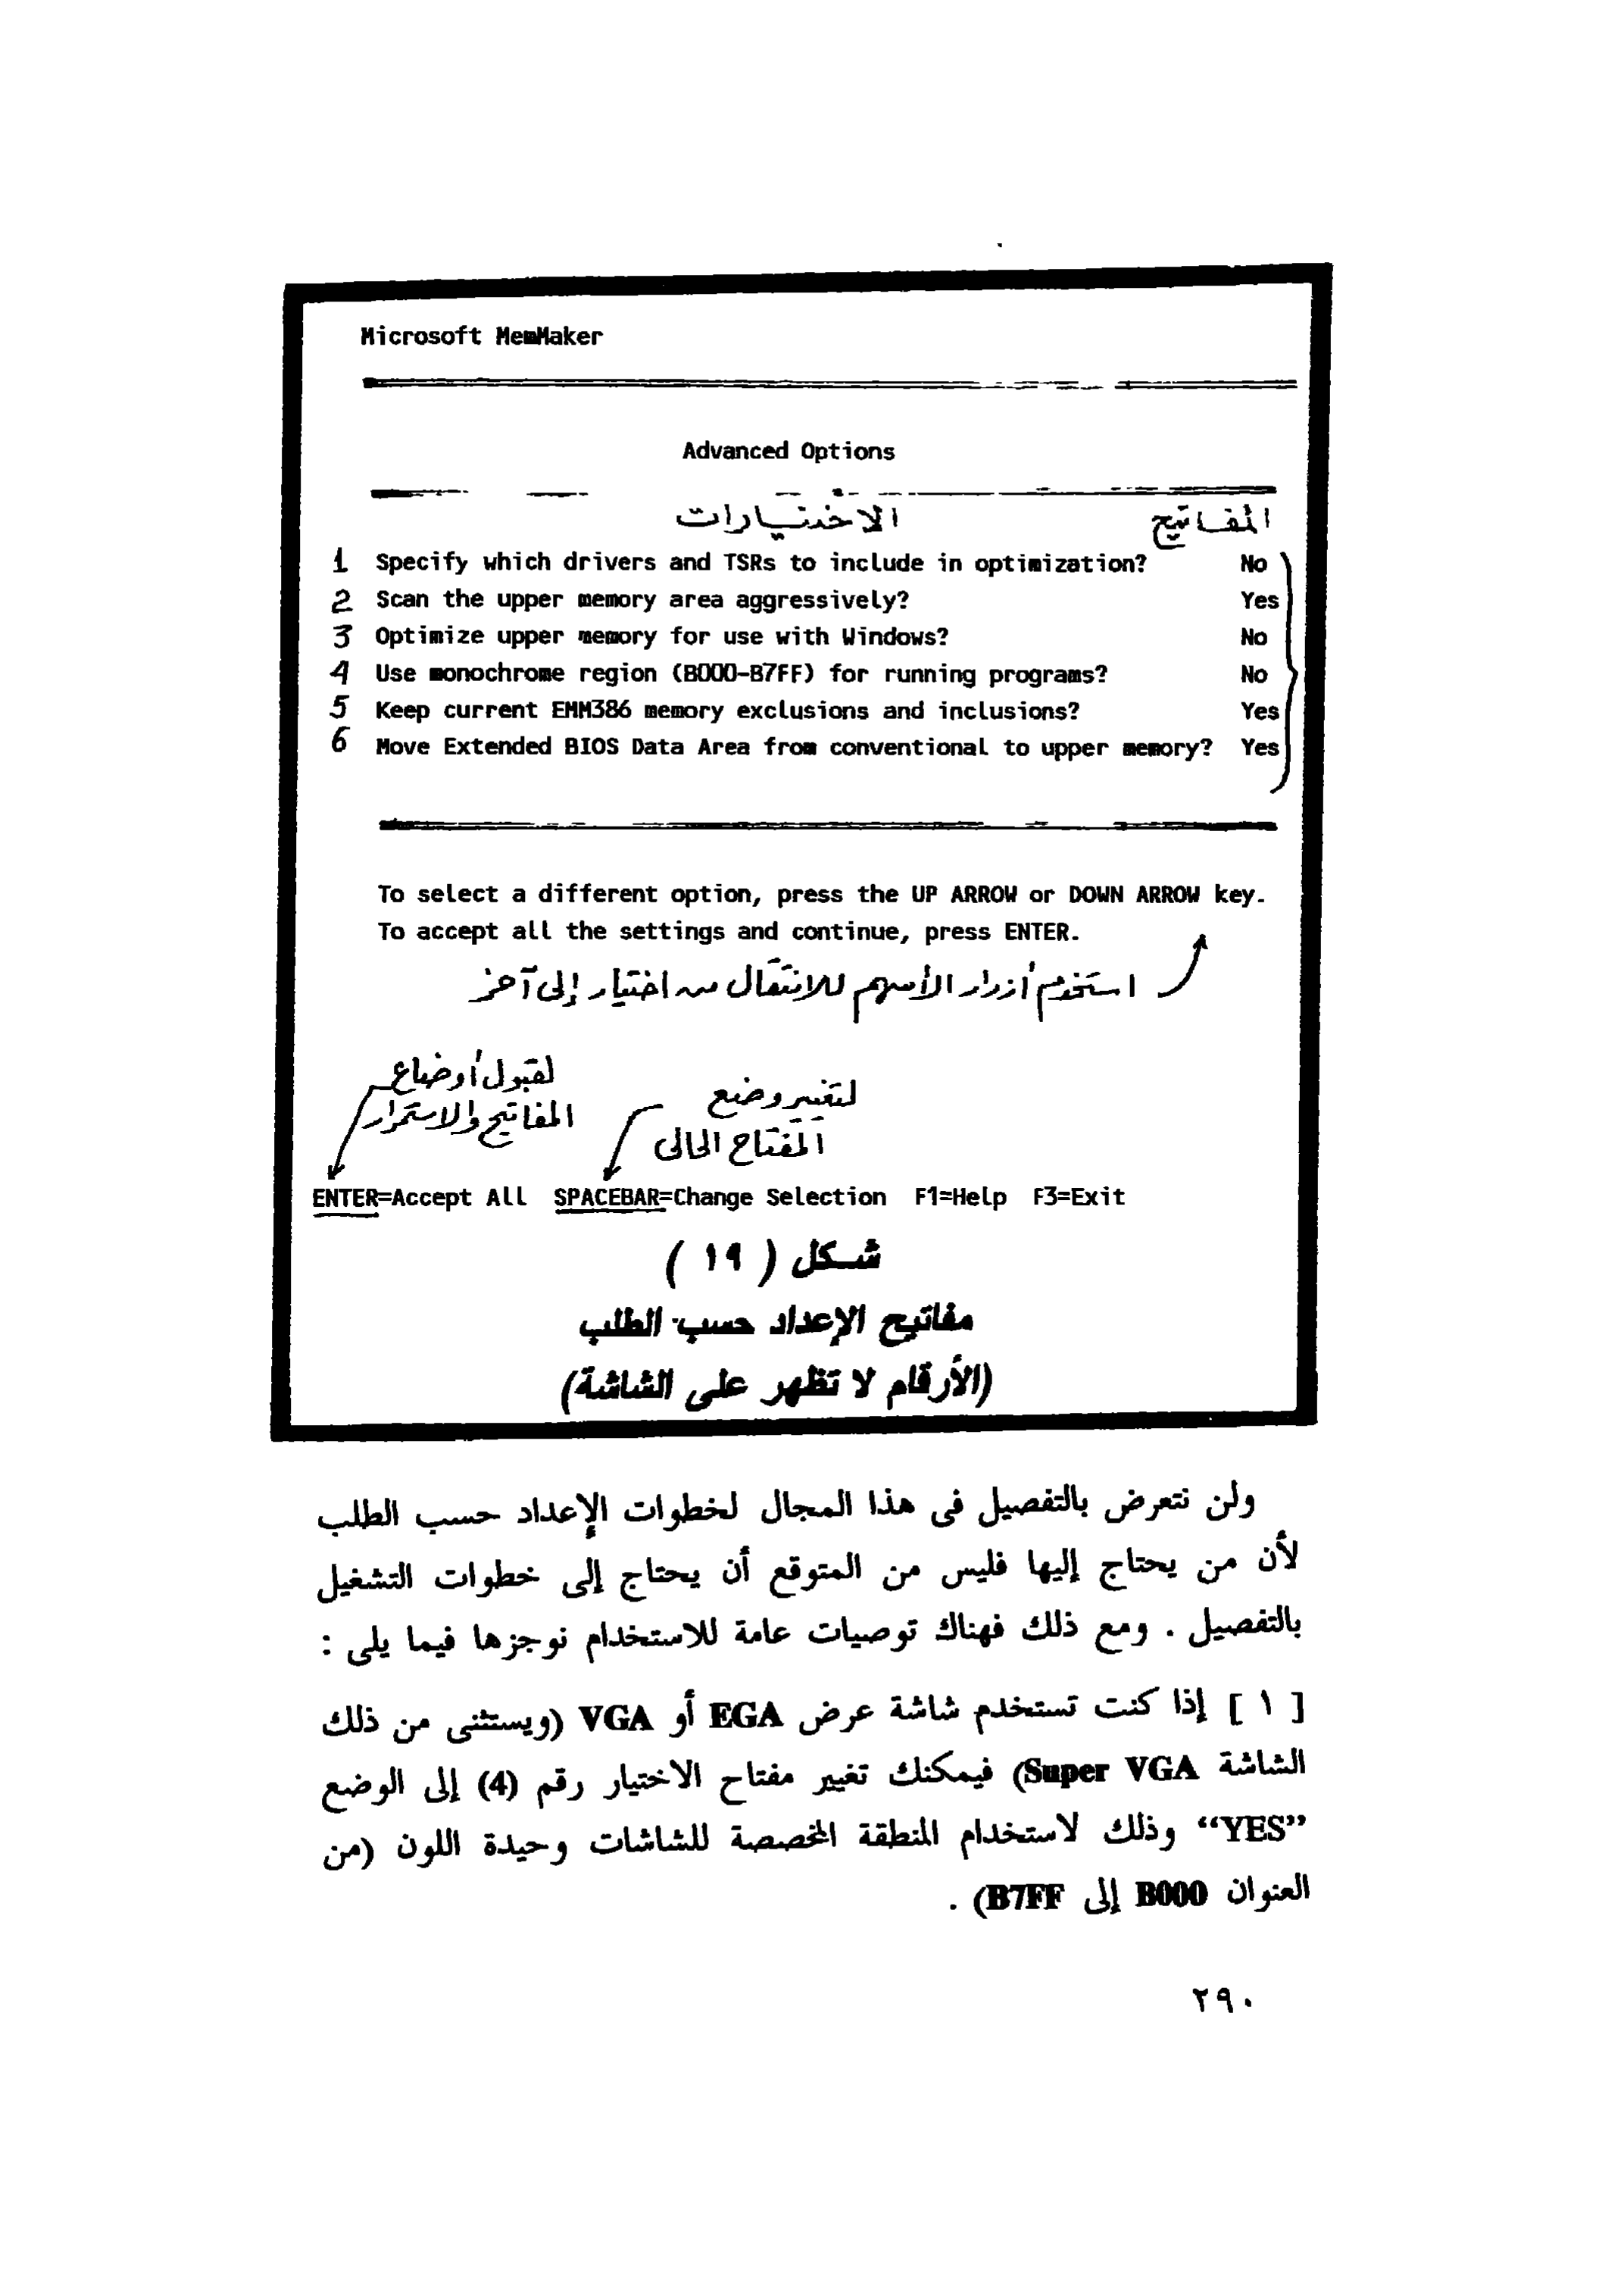 Microsoft MemMaker
Advanced Options
الاختيارات المفاتيح
1 Specify which drivers and TSRs to include in optimization? No
2 Scan the upper memory area aggressively? Yes
3 Optimize upper memory for use with Windows? No
4 Use monochrome region (B000-B7FF) for running programs? No
5 Keep current EMM386 memory exclusions and inclusions? Yes
6 Move Extended BIOS Data Area from conventional to upper memory? Yes
To select a different option, press the UP ARROW or DOWN ARROW key.
To accept all the settings and continue, press ENTER.
استخدم أزرار الأسهم للانتقال من اختيار إلى آخر
لقبول أوضاع
المفاتيح والاستمرار
لتغيير وضع
المفتاح الحالى
ENTER=Accept All SPACEBAR=Change Selection F1=Help F3=Exit
شكل ( ١٩ )
مفاتيح الإعداد حسب الطلب
(الأرقام لا تظهر على الشاشة)
ولن نتعرض بالتفصيل فى هذا المجال لخطوات الإعداد حسب الطلب
لأن من يحتاج إليها فليس من المتوقع أن يحتاج إلى خطوات التشغيل
بالتفصيل . ومع ذلك فهناك توصيات عامة للاستخدام نوجزها فيما يلى :
[ ١ ] إذا كنت تستخدم شاشة عرض EGA أو VGA (ويستثنى من ذلك
الشاشة Super VGA) فيمكنك تغيير مفتاح الاختيار رقم (4) إلى الوضع
“YES” وذلك لاستخدام المنطقة المخصصة للشاشات وحيدة اللون (من
العنوان B000 إلى B7FF) .
٢٩٠